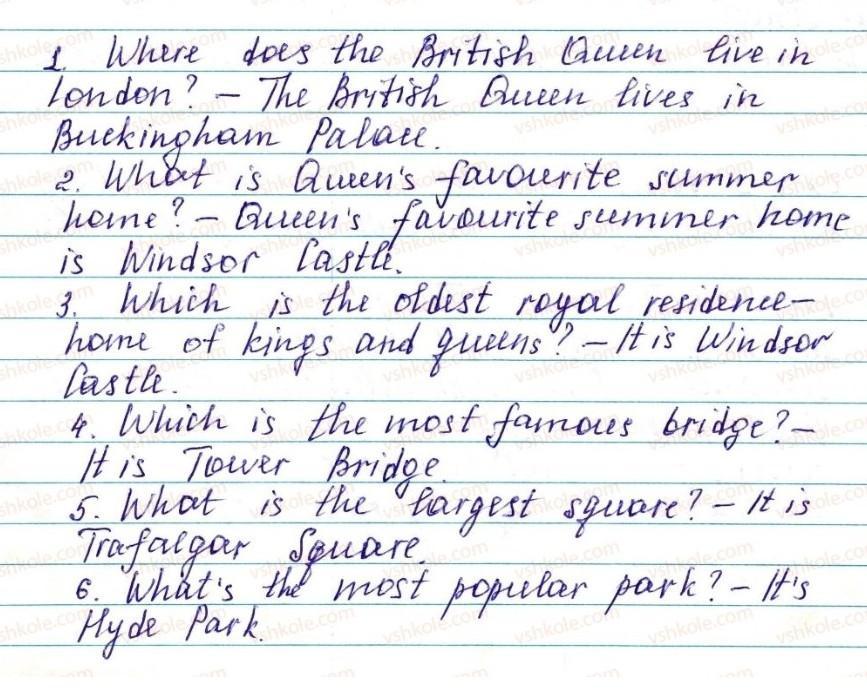 1. Where does the British Queen live in
London? – The British Queen lives in
Buckingham Palace.
2. What is Queen's favourite summer
home? – Queen's favourite summer home
is Windsor Castle.
3. Which is the oldest royal residence –
home of kings and queens? – It is Windsor
Castle.
4. Which is the most famous bridge? –
It is Tower Bridge.
5. What is the largest square? – It is
Trafalgar Square.
6. What's the most popular park? – It's
Hyde Park.